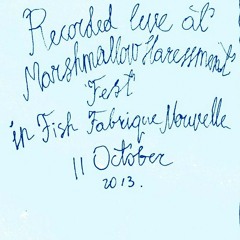 Recorded live at
Marshmallow Haressment
Fest
in Fish Fabrique Nouvelle
11 October
2013.